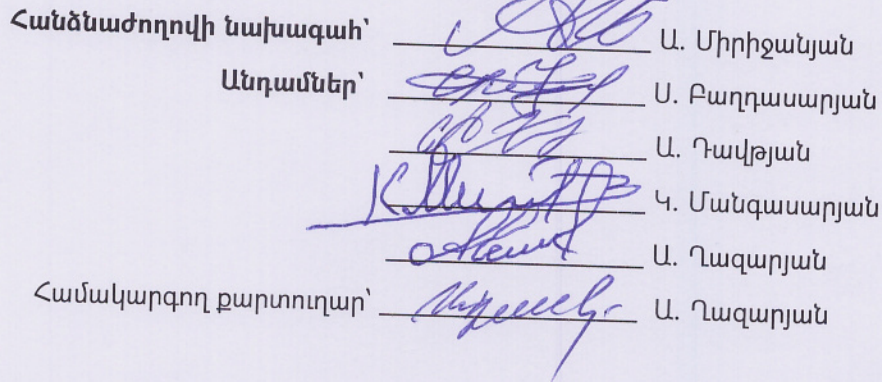 Հանձնաժողովի նախագահ՝ Ա. Միրիջանյան
Անդամներ՝ Ս. Բաղդասարյան
Ա. Դավթյան
Կ. Մանգասարյան
Ա. Ղազարյան
Համակարգող քարտուղար՝ Ա. Ղազարյան